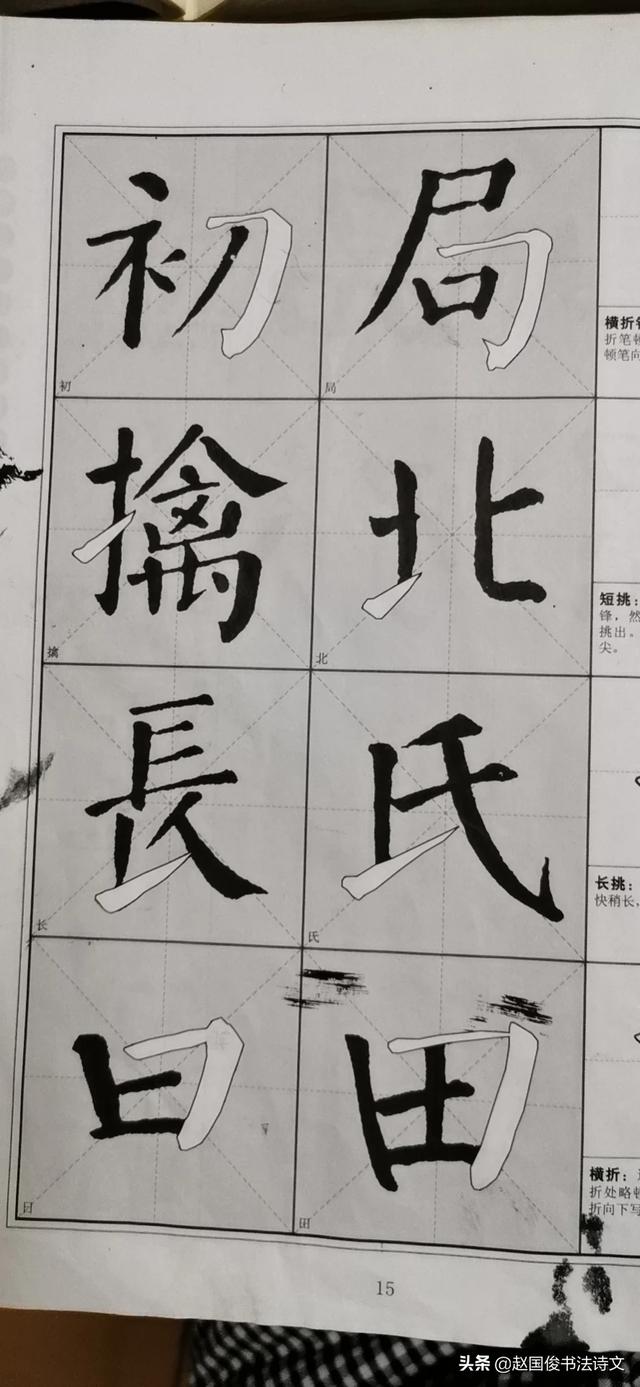 初 局
初 局
横折
折笔
顿笔向
擒 北
擒 北
短挑：
锋，然
挑出。
尖。
長 氏
长 氏
长挑：
快稍长，
日 田
日 田
横折：
折处略顿
折向下写
15
头条 @赵国俊书法诗文